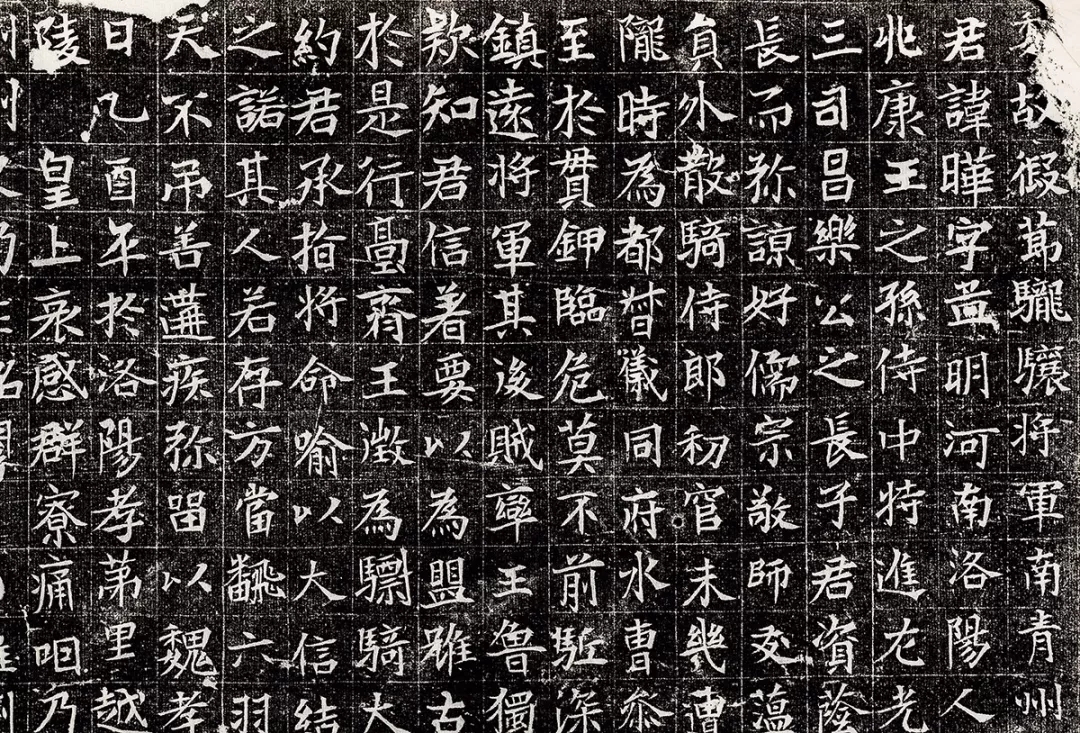 故假節䮾驤將軍南青州
君諱曄字孟明河南洛陽人
北康王之孫侍中特進左光
三司昌樂公之長子君資蔭
長而弥諒好儒宗敬師友薀
員外散騎侍郎初官未幾遭
隴時為都督儀同府水曹參
至於貫鉀臨危莫不前駈深
鎮遠將軍其後賊率王魯獨
歎知君信著要以為盟雖古
於是行臺齊王徵為驃騎大
約君承指將命喻以大信結
之諾其人若存方當飜六羽
天不弔善遘疾弥留以魏孝
日己酉卒於洛陽孝第里越
陵 皇上哀感群寮痛咽乃